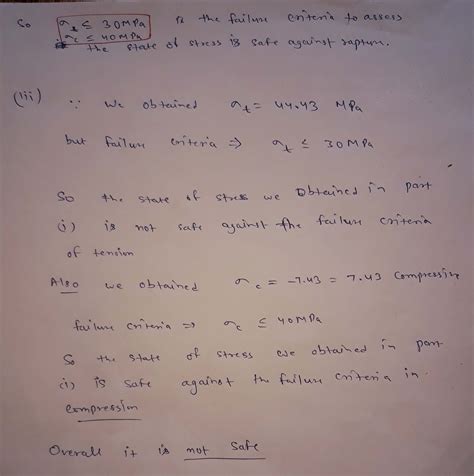 So σt ≤ 30MPa is the failure criteria to assess
σc ≤ 40MPa
the state of stress is safe against rapture.
(iii) ∵ We obtained σt = 44.43 MPa
but failure criteria ⇒ σt ≤ 30MPa
So the state of stress we obtained in part
(i) is not safe against the failure criteria
of tension
Also we obtained σc = -7.43 = 7.43 compressive
failure criteria ⇒ σc ≤ 40MPa
So the state of stress we obtained in part
(i) is safe against the failure criteria in
compression
Overall it is not safe